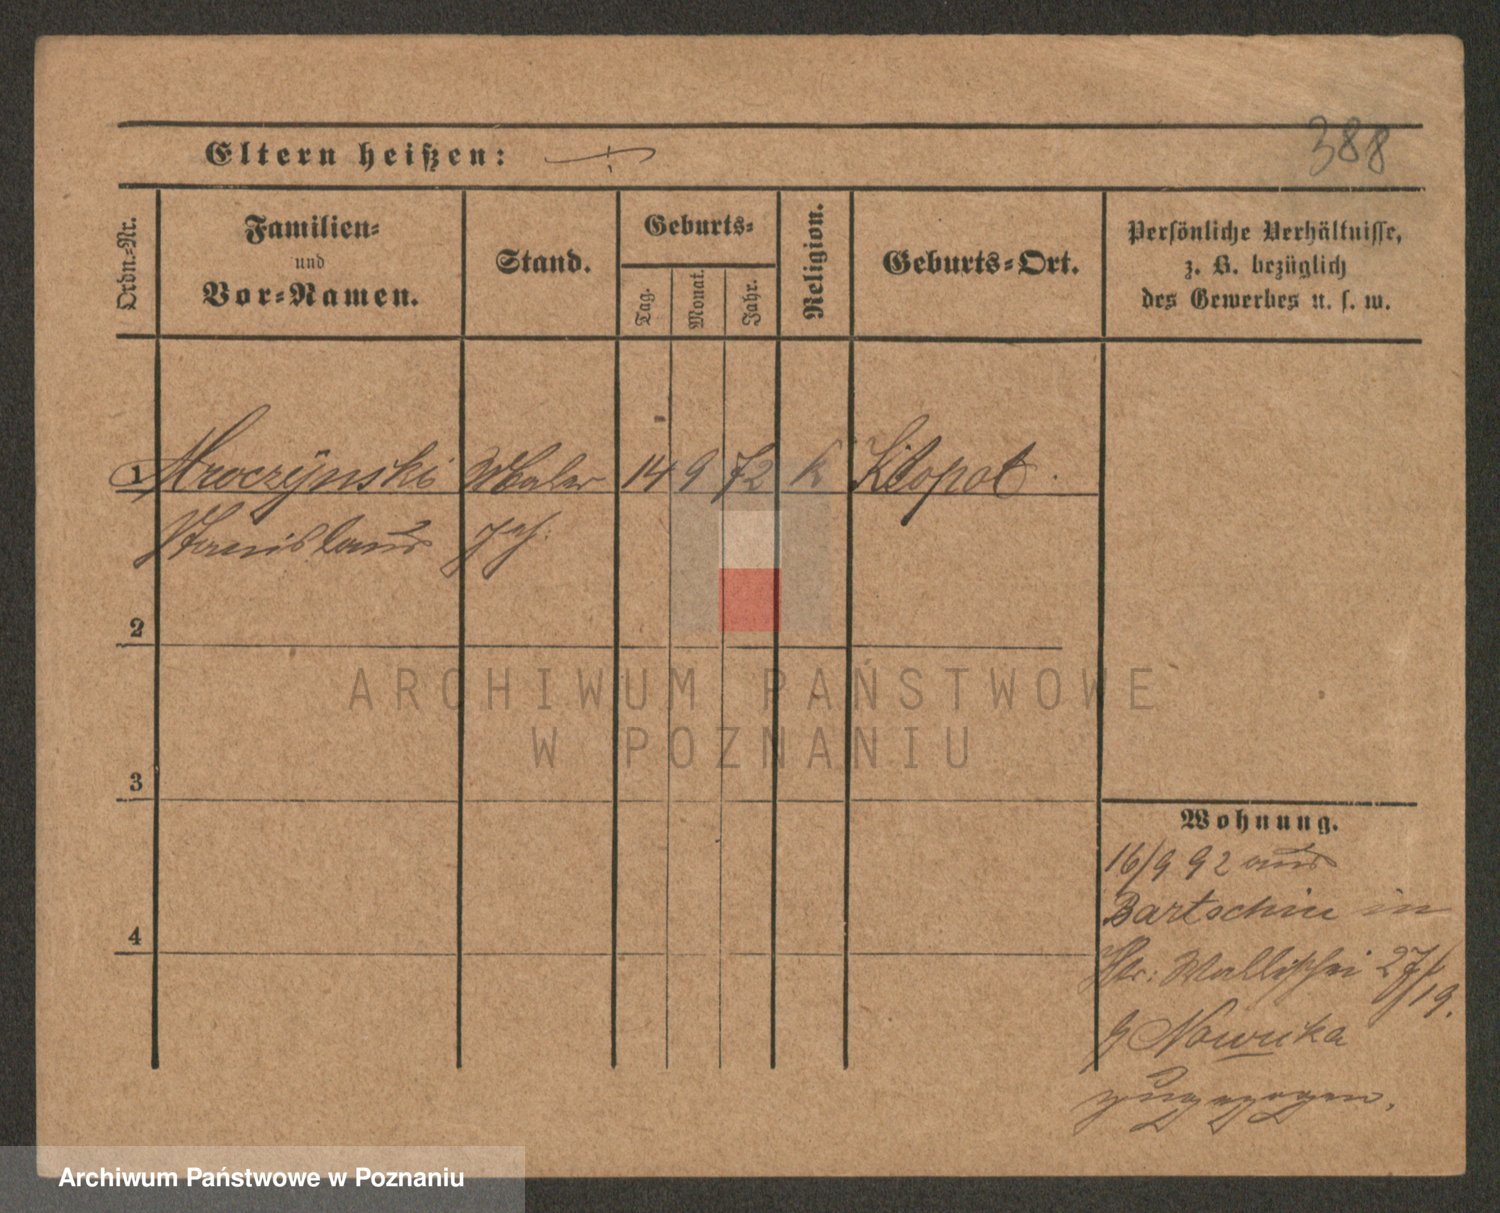 388
Eltern heißen:
Ordn.-Nr.
Familien-
und
Vor-Namen.
Stand.
Geburts-
Tag.
Monat.
Jahr.
Religion.
Geburts-Ort.
Persönliche Verhältnisse,
z. B. bezüglich
des Gewerbes u. s. w.
1 Mroczynski Maler 14 9 72 k Klopot
Stanislaus
2
3
4
Wohnung.
16/9 92 aus
Bartschin in
Wallischei 27/19.
Nowicka
zugezogen.
ARCHIWUM PAŃSTWOWE
W POZNANIU
Archiwum Państwowe w Poznaniu